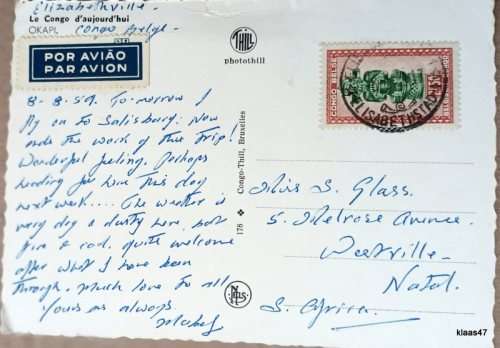 Elizabethville.
Le Congo d'aujourd'hui
OKAPI, Congo Belge.
POR AVIÃO
PAR AVION
THILL
photothill
CONGO BELGE
ELISABETHVILLE
8.8.51. To-morrow I
fly on to Salisbury. Now
ends the worst of this trip!
Wonderful feeling. Perhaps
heading for home this day
next week.... The weather is
very dry & dusty here, but
fine & cool, quite welcome
after what I have been
through. Much love to all
Yours as always
Mabel
178 Congo-Thill, Bruxelles
NELS
Miss S. Glass.
5. Melrose Avenue.
Westville.
Natal.
S. Africa.
klaas47